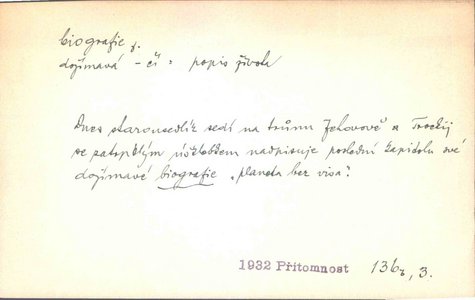 biografie f.
dojímavá - čí = popis života
Dnes starousedlík sedí na trůnu Jehovově a Trockij
se zatrpklým úšklebkem nadpisuje poslední kapitolu své
dojímavé biografie „planeta bez visa".
1932 Přítomnost 136, 3.